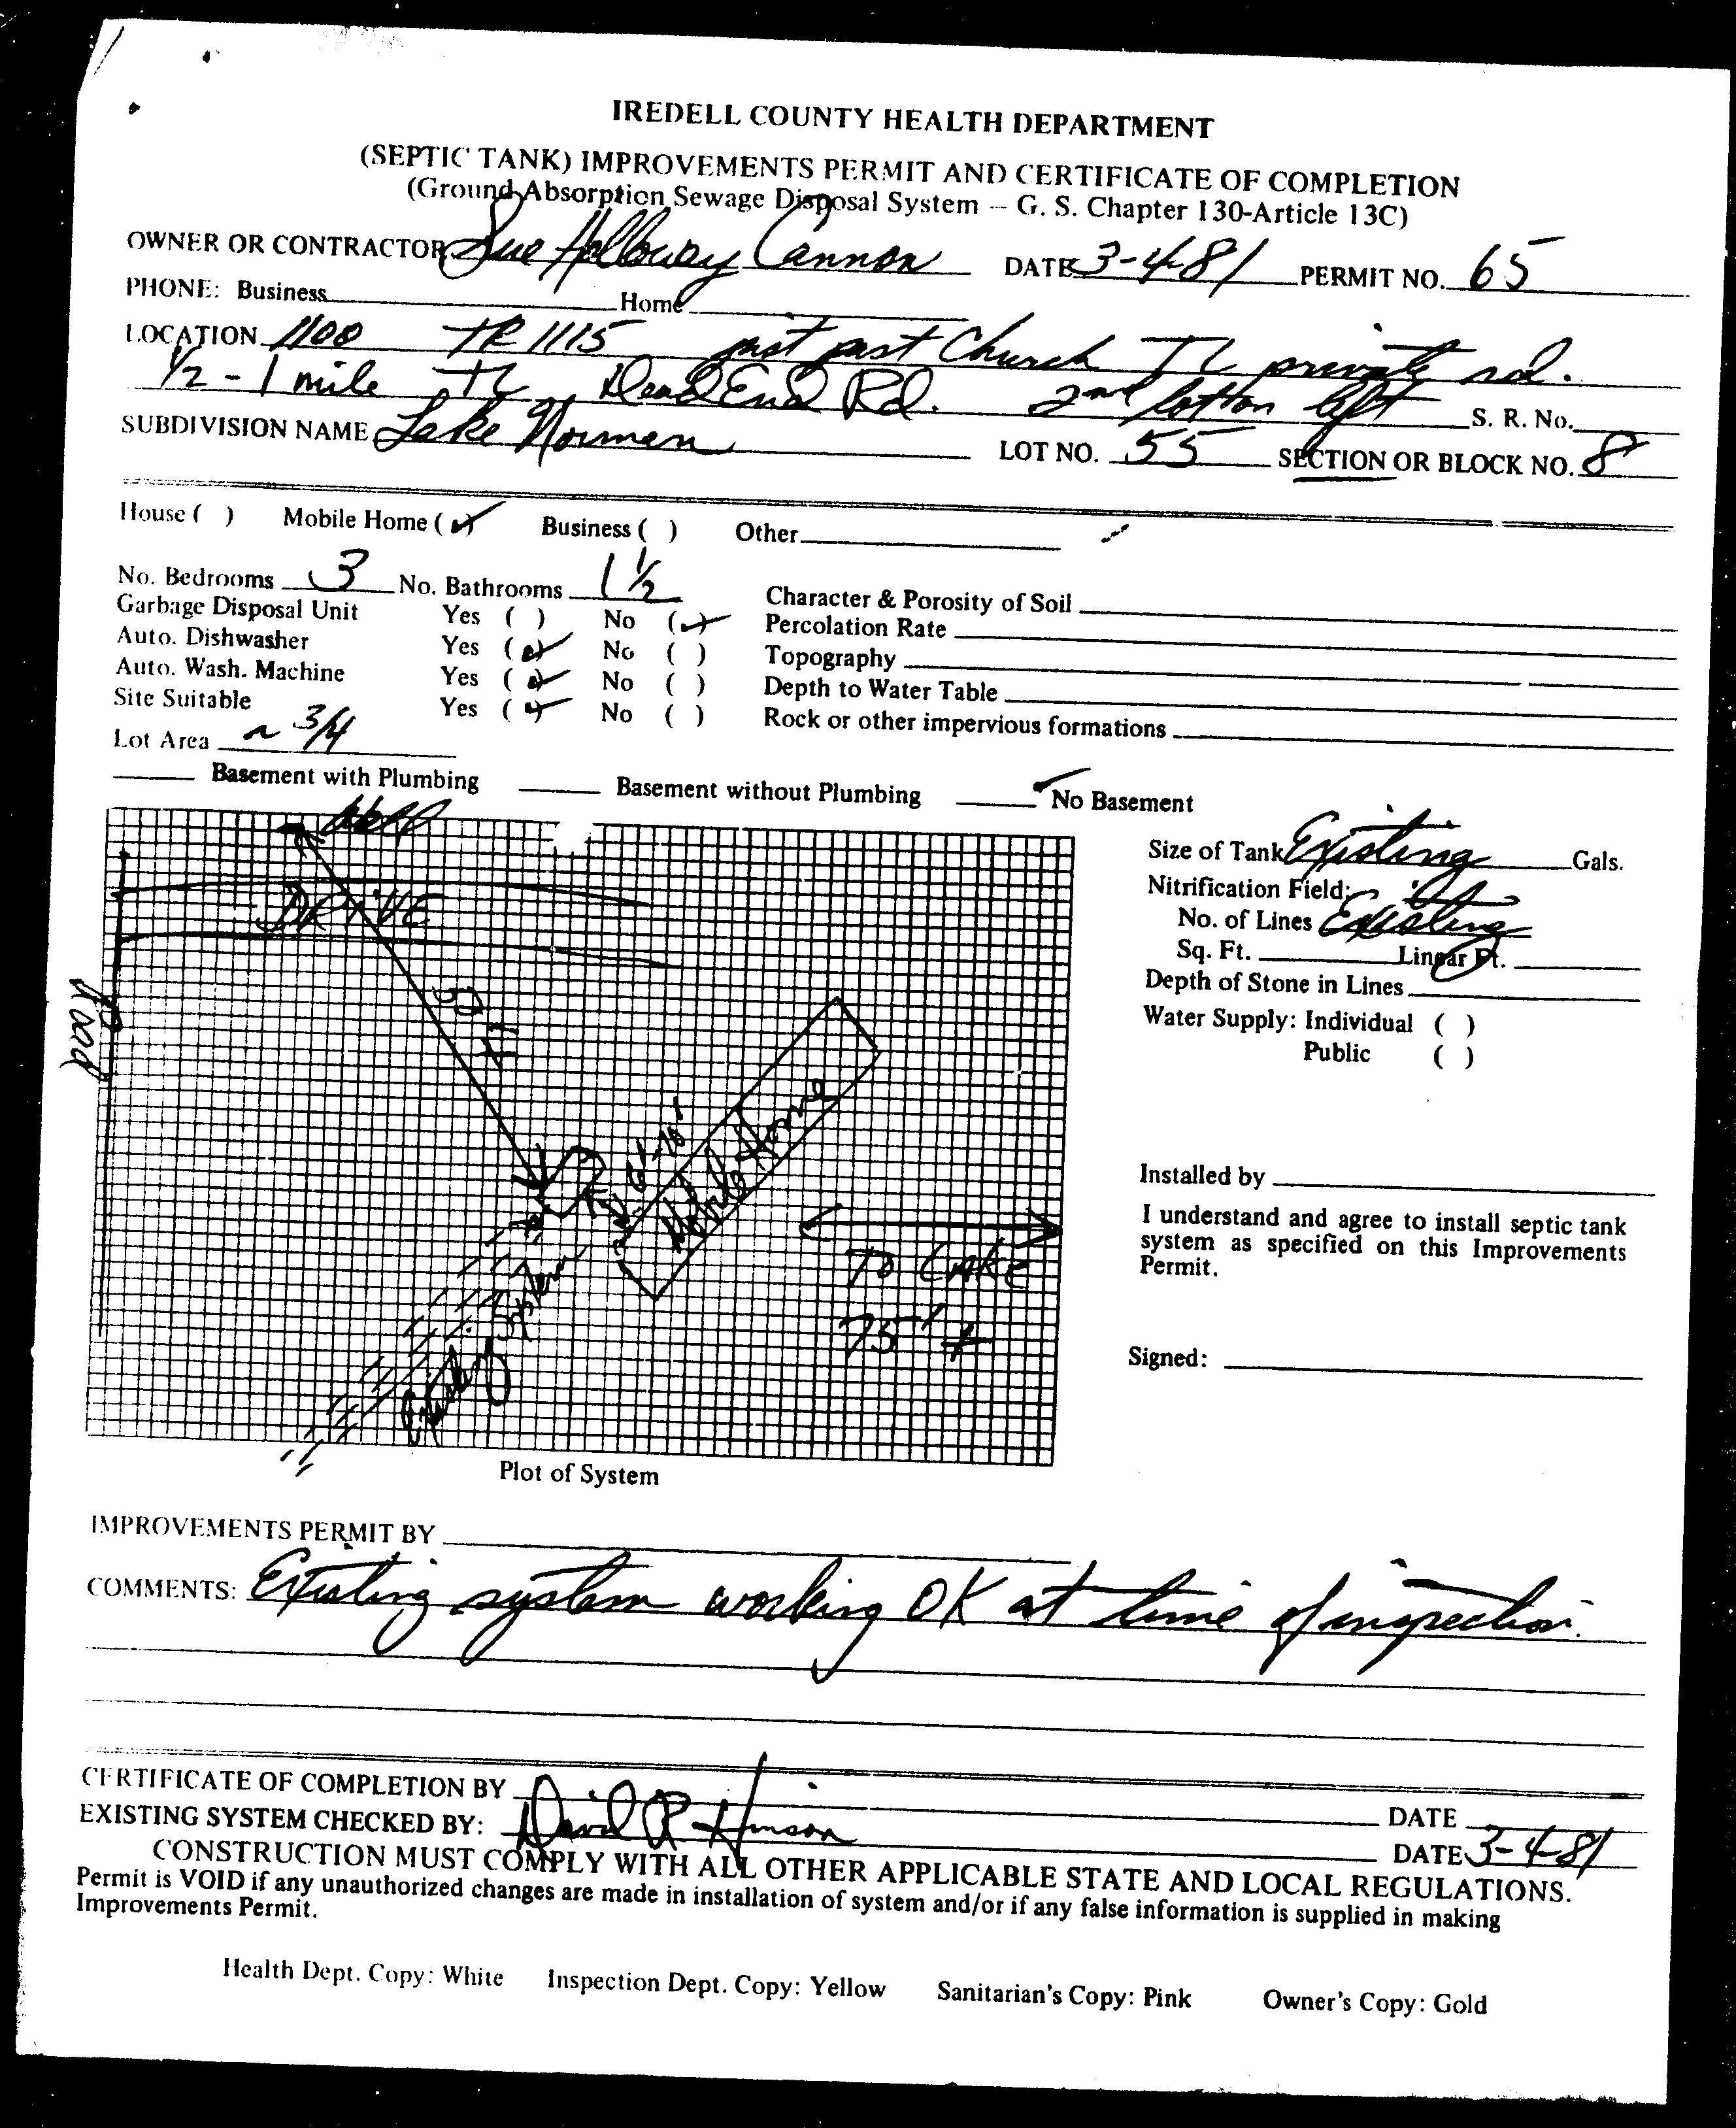 IREDELL COUNTY HEALTH DEPARTMENT
(SEPTIC TANK) IMPROVEMENTS PERMIT AND CERTIFICATE OF COMPLETION
(Ground Absorption Sewage Disposal System – G. S. Chapter 130-Article 13C)
OWNER OR CONTRACTOR Sue Holloway Cannon DATE 3-4-81 PERMIT NO. 65
PHONE: Business Home
LOCATION 1100 TR 1115 just past Church TL private rd.
1/2 - 1 mile TL Dead End Rd. 2nd lot on left S. R. No.
SUBDIVISION NAME Lake Norman LOT NO. 55 SECTION OR BLOCK NO. 8
House ( ) Mobile Home (✓) Business ( ) Other
No. Bedrooms 3 No. Bathrooms 1 1/2 Character & Porosity of Soil
Garbage Disposal Unit Yes ( ) No (✓) Percolation Rate
Auto. Dishwasher Yes (✓) No ( ) Topography
Auto. Wash. Machine Yes (✓) No ( ) Depth to Water Table
Site Suitable Yes (✓) No ( ) Rock or other impervious formations
Lot Area ~ 3/4
Basement with Plumbing Basement without Plumbing ✓ No Basement
Well
DRIVE
Road
50 ft
Mobile Home
Existing System
TO LAKE
75' ±
Size of Tank Existing Gals.
Nitrification Field:
No. of Lines Existing
Sq. Ft. Linear Ft.
Depth of Stone in Lines
Water Supply: Individual ( )
Public ( )
Installed by
I understand and agree to install septic tank
system as specified on this Improvements
Permit.
Signed:
Plot of System
IMPROVEMENTS PERMIT BY
COMMENTS: Existing system working OK at time of inspection.
CERTIFICATE OF COMPLETION BY DATE
EXISTING SYSTEM CHECKED BY: David R Hinson DATE 3-4-81
CONSTRUCTION MUST COMPLY WITH ALL OTHER APPLICABLE STATE AND LOCAL REGULATIONS.
Permit is VOID if any unauthorized changes are made in installation of system and/or if any false information is supplied in making
Improvements Permit.
Health Dept. Copy: White Inspection Dept. Copy: Yellow Sanitarian's Copy: Pink Owner's Copy: Gold